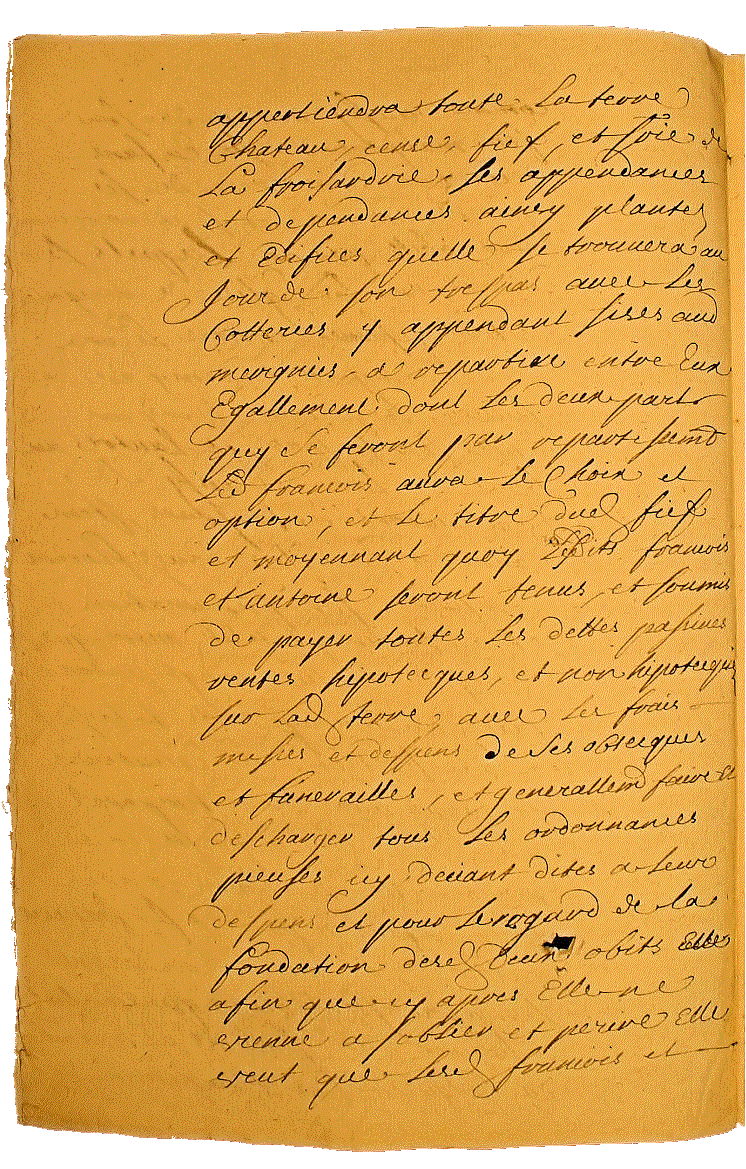 appertiendra toute la terre
Chateau, cense, fief, et s^rie de
La froisardrie ses appendances
et dependances ainsy plantes
et Edifices quelle se trouvera au
Jour de son trespas avec les
Cotteries y appendant sises aud
merignies, a repartire entre Eux
Egallement dont les deux parts
quy se feront par repartissemt
Led francois aura le choix et
option, et le titre dud fief
et moyennant quoy Lesdits francois
et antoine seront tenus, et soumis
de payer toutes les dettes passives
rentes hipotecques, et non hipotecques
sur Lad terre, avec les frais
mises et despens de ses obsecques
et funerailles, et generallemt faire et
descharger tous les ordonnances
pieuses icy devant dites a leur
despens et pour le regard de la
fondation desd deux obits Elle
afin que cy apres Elle ne
vienne a s'oblier et perire Elle
veut que lesd francois et